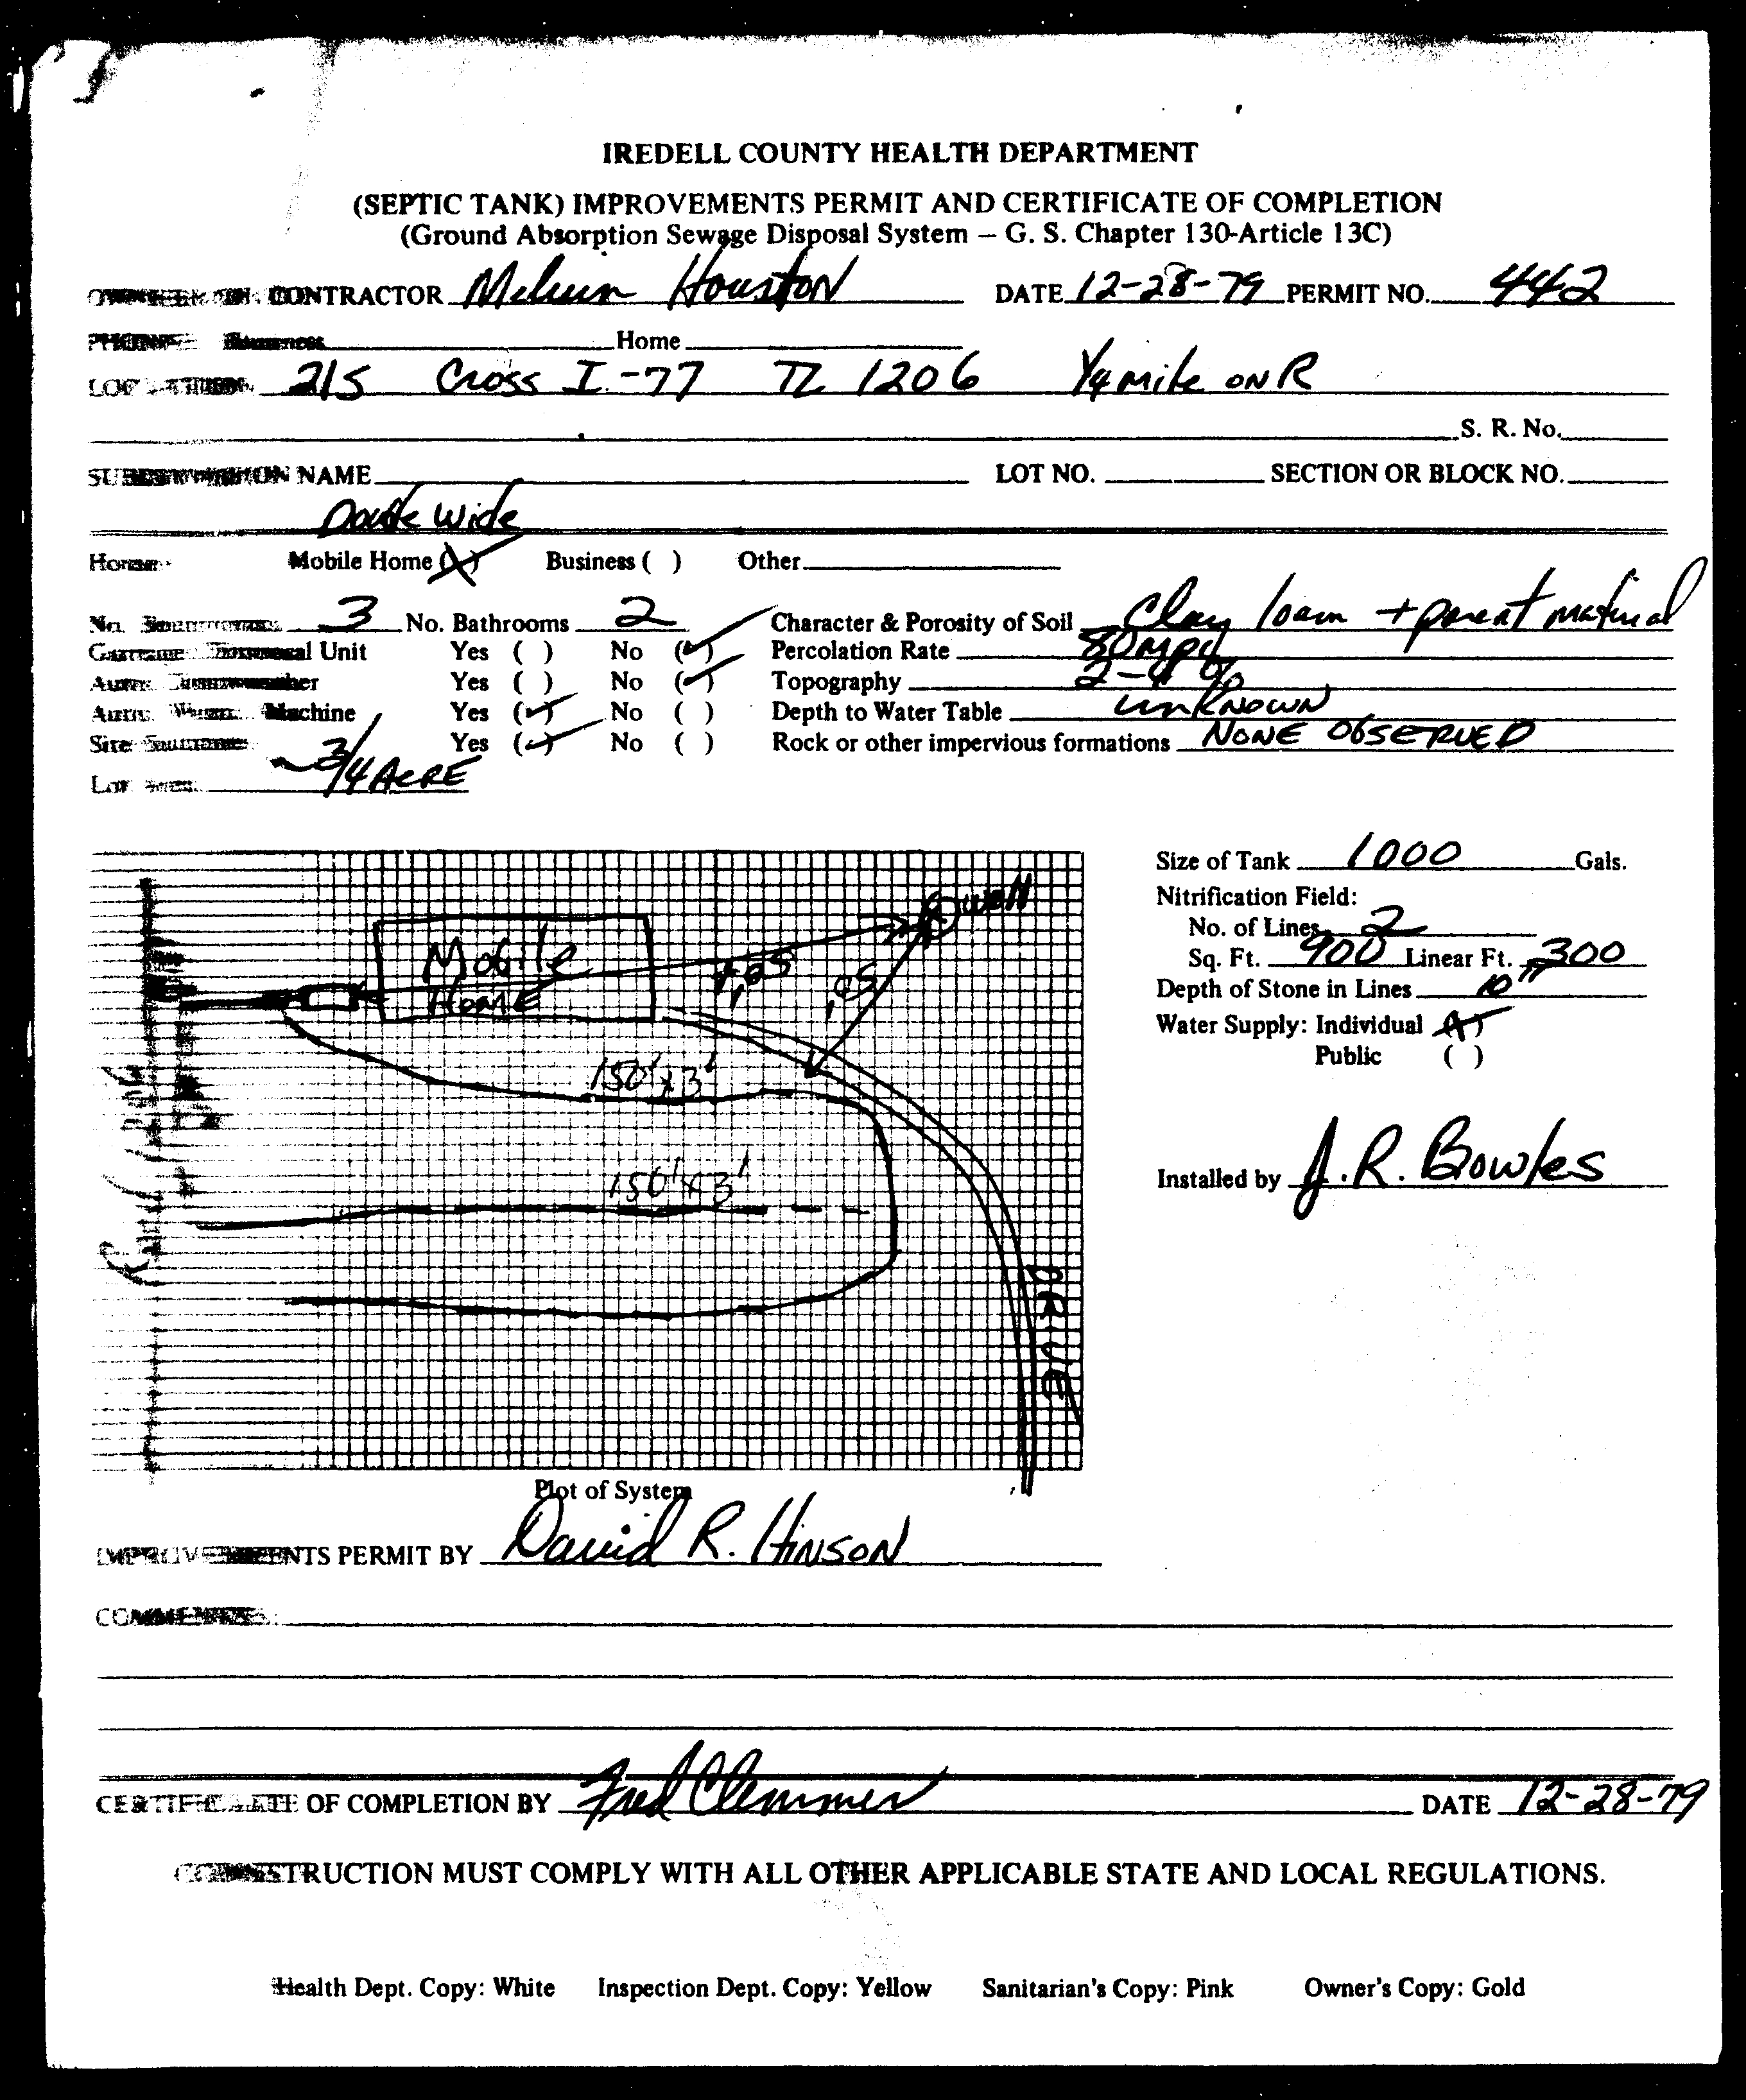 IREDELL COUNTY HEALTH DEPARTMENT
(SEPTIC TANK) IMPROVEMENTS PERMIT AND CERTIFICATE OF COMPLETION
(Ground Absorption Sewage Disposal System – G. S. Chapter 130-Article 13C)
CONTRACTOR Melvin Houston DATE 12-28-79 PERMIT NO. 442
PHONE Business Home
LOCATION 21S Cross I-77 TL 1206 1/4 mile ON R
S. R. No.
SUBDIVISION NAME LOT NO. SECTION OR BLOCK NO.
Double Wide
House Mobile Home (X) Business ( ) Other
No. 3 No. Bathrooms 2 Character & Porosity of Soil Clay loam + parent material
Garbage Disposal Unit Yes ( ) No (✓) Percolation Rate 80 mpi
Auto. Dishwasher Yes ( ) No (✓) Topography 2-4 %
Auto. Wash. Machine Yes (✓) No ( ) Depth to Water Table unKNOWN
Site Yes (✓) No ( ) Rock or other impervious formations NONE OBSERVED
Lot ~3/4 ACRE
Size of Tank 1000 Gals.
Nitrification Field:
No. of Lines 2
Sq. Ft. 900 Linear Ft. 300
Depth of Stone in Lines 10"
Water Supply: Individual (X)
Public ( )
Installed by J.R. Bowles
well
Mobile
HOME
150' x 3'
150' x 3'
DRIVE
Plot of System
IMPROVEMENTS PERMIT BY David R. HINSON
COMMENTS:
CERTIFICATE OF COMPLETION BY Fred Clemmer DATE 12-28-79
CONSTRUCTION MUST COMPLY WITH ALL OTHER APPLICABLE STATE AND LOCAL REGULATIONS.
Health Dept. Copy: White Inspection Dept. Copy: Yellow Sanitarian's Copy: Pink Owner's Copy: Gold